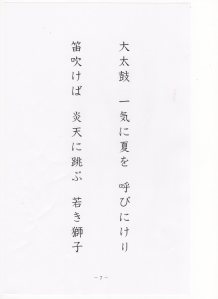 大太鼓 一気に夏を 呼びにけり
笛吹けば 炎天に跳ぶ 若き獅子
－7－